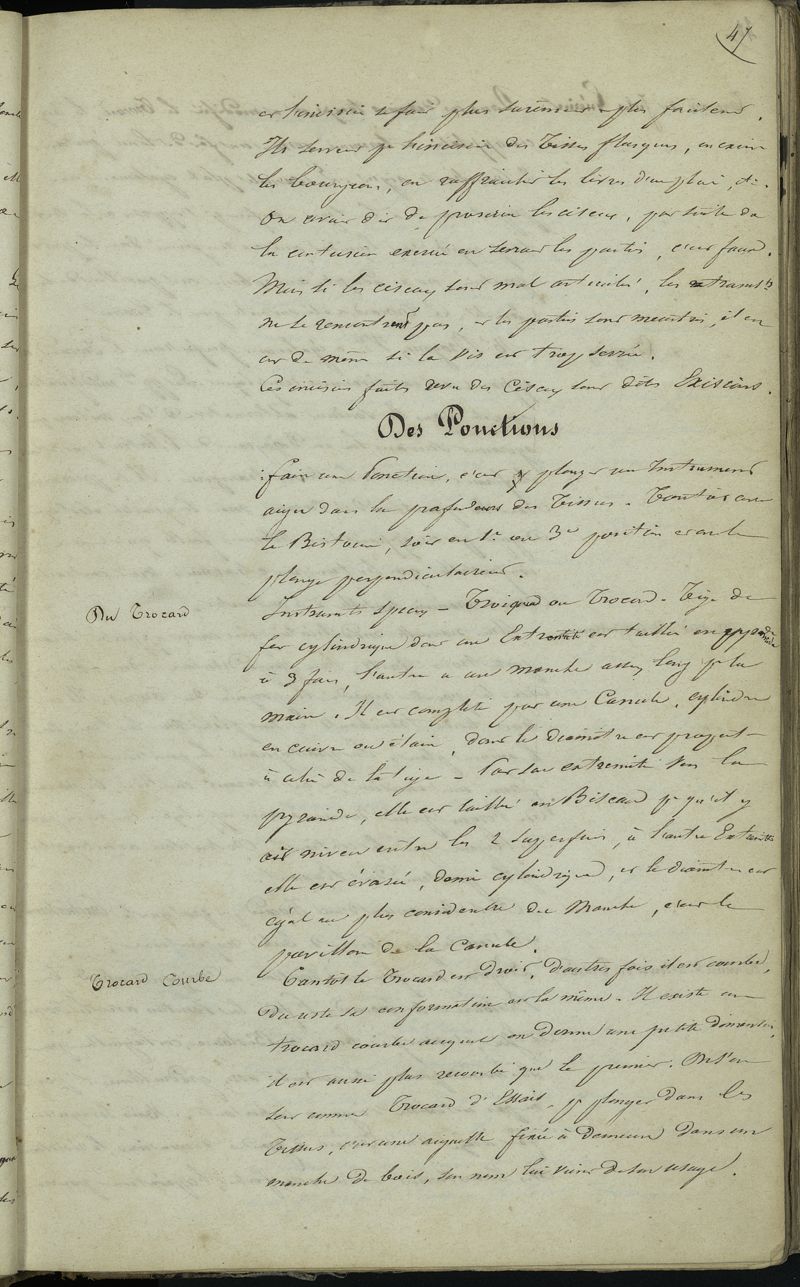 47
et l'incision se fait plus surement et plus facilement.
Ils servent pr l'incision des Tissus flasques, on excise
les bourgeons, on raffraichit les lèvres d'une plaie, etc.
On avait dit de proscrire les ciseaux, par suite de
la contusion exercée en serrant les parties, c'est faux.
Mais si les ciseaux sont mal articulés, les tranchts
ne se rencontrent pas, et les parties sont meurtries, il en
est de même si la vis est trop serrée.
Ces incisions faites avec des Ciseaux sont dites Excisions.
Des Ponctions
Faire une Ponction, c'est plonger un Instrument
aigu dans la profondeur des Tissus. Tantôt avec
le Bistouri, soit en 1re ou 3e position et on le
plonge perpendiculairement.
Du Trocard
Instruments spéciaux — Troisquart ou Trocard. Tige de
fer cylindrique dont une Extremité est taillée en pyramide
à 3 faces, l'autre a un manche assez long pr la
main. Il est complété par une Canule, cylindre
en cuivre ou étain, dont le diamètre est proport-
à celui de la tige — Par son extremité vers la
pyramide, elle est taillée en Biseau pr qu'il y
ait niveau entre les 2 superficies, à l'autre Extremité
elle est évasée, demi cylindrique, et le diamètre est
égal au plus considérable du Manche, c'est le
pavillon de la Canule.
Trocard Courbe
Tantôt le Trocard est droit, d'autres fois il est courbe,
Du reste sa conformation est la même. Il existe un
trocard courbe auquel on donne une petite dimension,
il est aussi plus recourbé que le premier. On s'en
sert comme Trocard d'Essais, pr plonger dans les
Tissus, c'est une aiguille fixée à demeure dans un
manche de bois, son nom lui vient de son usage.